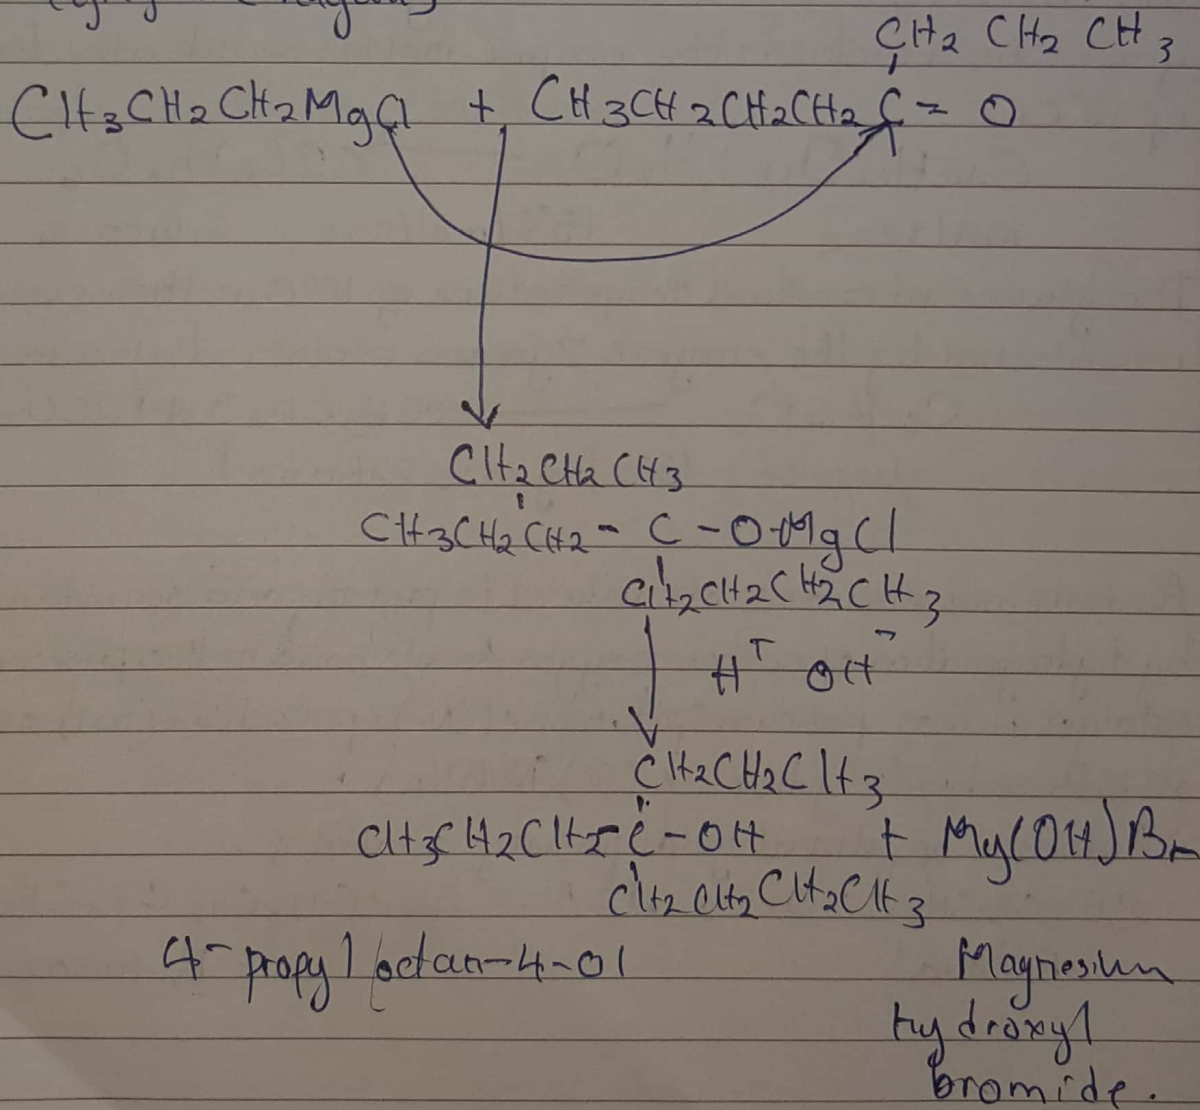 CH2 CH2 CH3
CH3CH2CH2MgCl + CH3CH2CH2CH2 C = O
CH2CH2CH3
CH3CH2CH2 - C - O-MgCl
CH2CH2CH2CH3
H+ OH-
CH2CH2CH3
CH3CH2CH2 - C - OH + Mg(OH)Br
CH2CH2CH2CH3
4-propyl octan-4-ol Magnesium
hydroxyl
bromide.